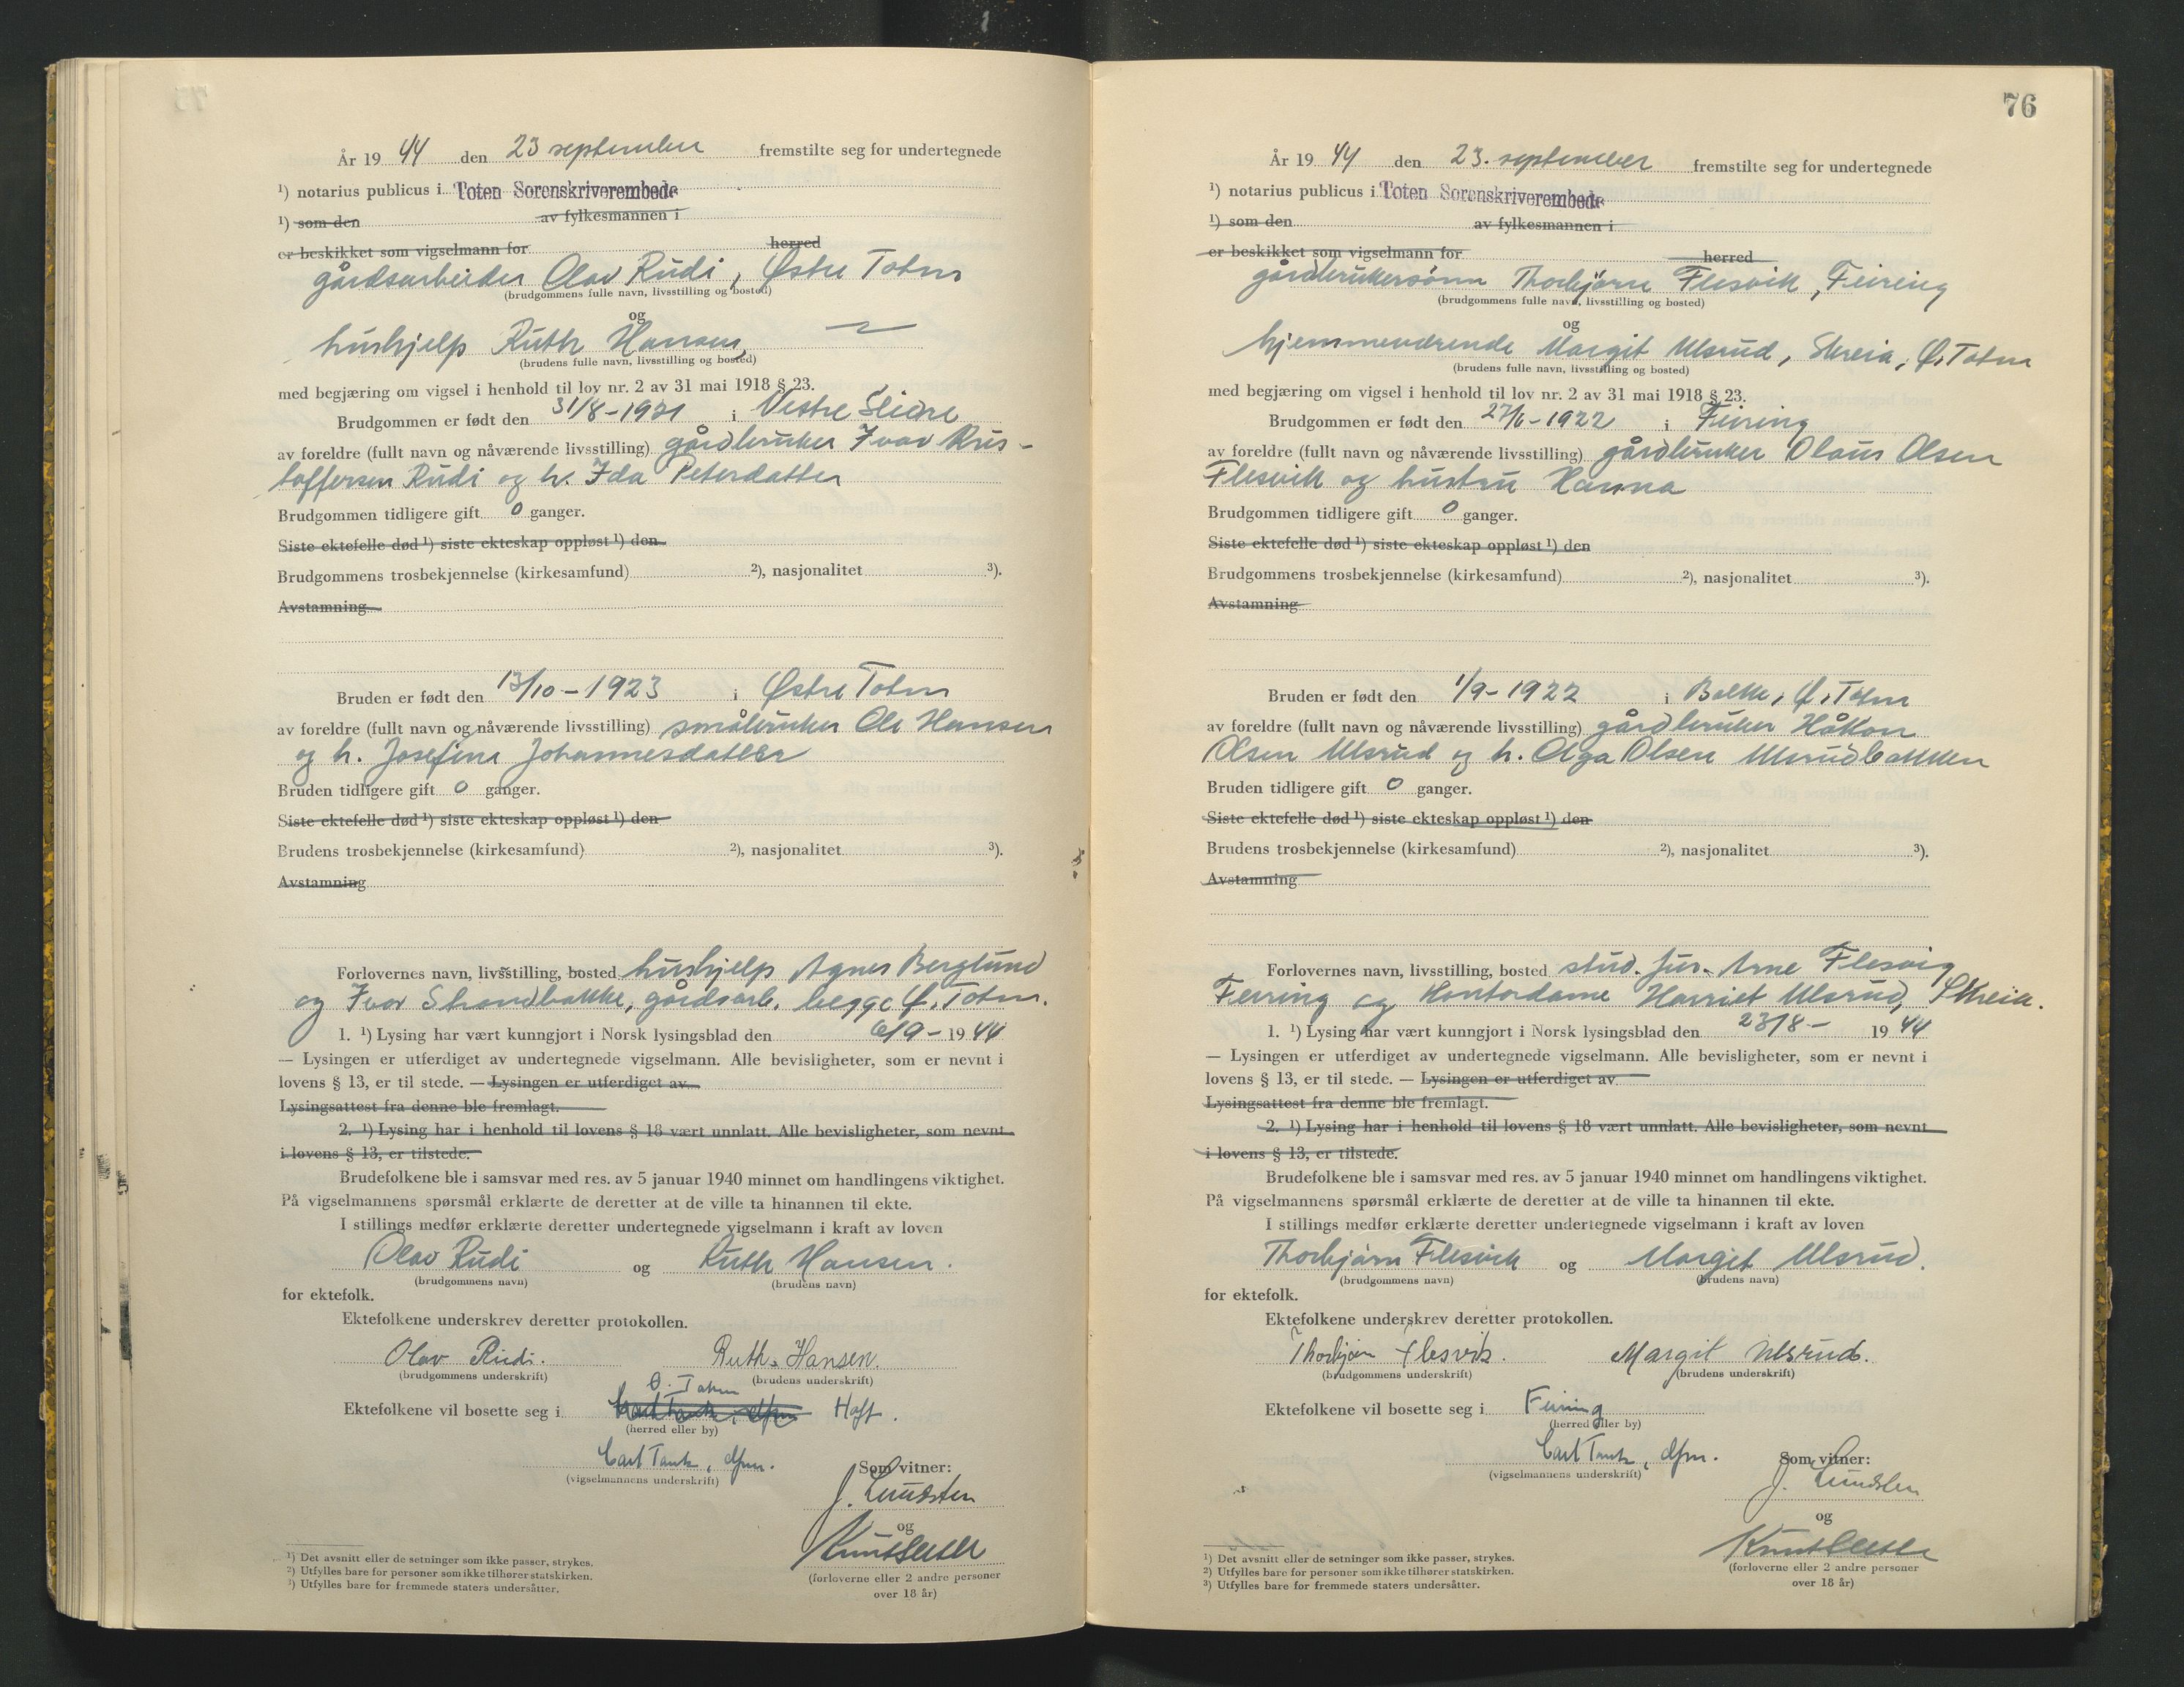 År 19 44 den 23 september fremstilte seg for undertegnede
¹) notarius publicus i Toten Sorenskriverembede
¹) som den av fylkesmannen i
er beskikket som vigselmann for herred
gårdsarbeider Olav Rudi, Østre Toten
(brudgommens fulle navn, livsstilling og bosted)
og
hushjelp Ruth Hansen,
(brudens fulle navn, livsstilling og bosted)
med begjæring om vigsel i henhold til lov nr. 2 av 31 mai 1918 § 23.
Brudgommen er født den 31/8-1921 i Vestre Slidre
av foreldre (fullt navn og nåværende livsstilling) gårdbruker Ivar Kris-
toffersen Rudi og h. Ida Petersdatter
Brudgommen tidligere gift 0 ganger.
Siste ektefelle død ¹) siste ekteskap oppløst ¹) den
Brudgommens trosbekjennelse (kirkesamfund) ²), nasjonalitet ³).
Avstamning
Bruden er født den 13/10-1923 i Østre Toten
av foreldre (fullt navn og nåværende livsstilling) småbruker Ole Hansen
og h. Josefine Johannesdatter
Bruden tidligere gift 0 ganger.
Siste ektefelle død ¹) siste ekteskap oppløst ¹) den
Brudens trosbekjennelse (kirkesamfund) ²), nasjonalitet ³).
Avstamning
Forlovernes navn, livsstilling, bosted hushjelp Agnes Berglund
og Ivar Strandbakke, gårdsarb. begge Ø. Toten.
1. ¹) Lysing har vært kunngjort i Norsk lysingsblad den 6/9- 19 44
— Lysingen er utferdiget av undertegnede vigselmann. Alle bevisligheter, som er nevnt i
lovens § 13, er til stede. — Lysingen er utferdiget av
Lysingsattest fra denne ble fremlagt.
2. ¹) Lysing har i henhold til lovens § 18 vært unnlatt. Alle bevisligheter, som nevnt
i lovens § 13, er tilstede.
Brudefolkene ble i samsvar med res. av 5 januar 1940 minnet om handlingens viktighet.
På vigselmannens spørsmål erklærte de deretter at de ville ta hinannen til ekte.
I stillings medfør erklærte deretter undertegnede vigselmann i kraft av loven
Olav Rudi og Ruth Hansen.
(brudgommens navn) (brudens navn)
for ektefolk.
Ektefolkene underskrev deretter protokollen.
Olav Rudi. Ruth Hansen.
(brudgommens underskrift) (brudens underskrift)
Ø. Toten
Ektefolkene vil bosette seg i
(herred eller by)
Carl Tank, dfm.
(vigselmannens underskrift)
Som vitner:
J. Lundsten
og
(forloverne eller 2 andre personer
over 18 år)
¹) Det avsnitt eller de setninger som ikke passer, strykes.
²) Utfylles bare for personer som ikke tilhører statskirken.
³) Utfylles bare for fremmede staters undersåtter.
76
År 19 44 den 23. september fremstilte seg for undertegnede
¹) notarius publicus i Toten Sorenskriverembede
¹) som den av fylkesmannen i
er beskikket som vigselmann for herred
gårdbrukersønn Thorbjørn Flesvik, Feiring
(brudgommens fulle navn, livsstilling og bosted)
og
hjemmeværende Margit Ulsrud, Skreia, Ø. Toten
(brudens fulle navn, livsstilling og bosted)
med begjæring om vigsel i henhold til lov nr. 2 av 31 mai 1918 § 23.
Brudgommen er født den 27/6-1922 i Feiring
av foreldre (fullt navn og nåværende livsstilling) gårdbruker Olaus Olsen
Flesvik og hustru Hanna
Brudgommen tidligere gift 0 ganger.
Siste ektefelle død ¹) siste ekteskap oppløst ¹) den
Brudgommens trosbekjennelse (kirkesamfund) ²), nasjonalitet ³).
Avstamning
Bruden er født den 1/9-1922 i Balke, Ø. Toten
av foreldre (fullt navn og nåværende livsstilling) gårdbruker Håkon
Olsen Ulsrud og h. Olga Olsen Ulsrudbakken
Bruden tidligere gift 0 ganger.
Siste ektefelle død ¹) siste ekteskap oppløst ¹) den
Brudens trosbekjennelse (kirkesamfund) ²), nasjonalitet ³).
Avstamning
Forlovernes navn, livsstilling, bosted stud. jur. Arne Flesvig
Feiring og kontordame Harriet Ulsrud, Skreia.
1. ¹) Lysing har vært kunngjort i Norsk lysingsblad den 23/8- 19 44
— Lysingen er utferdiget av undertegnede vigselmann. Alle bevisligheter, som er nevnt i
lovens § 13, er til stede. — Lysingen er utferdiget av
Lysingsattest fra denne ble fremlagt.
2. ¹) Lysing har i henhold til lovens § 18 vært unnlatt. Alle bevisligheter, som nevnt
i lovens § 13, er tilstede.
Brudefolkene ble i samsvar med res. av 5 januar 1940 minnet om handlingens viktighet.
På vigselmannens spørsmål erklærte de deretter at de ville ta hinannen til ekte.
I stillings medfør erklærte deretter undertegnede vigselmann i kraft av loven
Thorbjørn Flesvik og Margit Ulsrud.
(brudgommens navn) (brudens navn)
for ektefolk.
Ektefolkene underskrev deretter protokollen.
Thorbjørn Flesvik. Margit Ulsrud.
(brudgommens underskrift) (brudens underskrift)
Ektefolkene vil bosette seg i Feiring
(herred eller by)
Carl Tank, dfm.
(vigselmannens underskrift)
Som vitner:
J. Lundsten
og
(forloverne eller 2 andre personer
over 18 år)
¹) Det avsnitt eller de setninger som ikke passer, strykes.
²) Utfylles bare for personer som ikke tilhører statskirken.
³) Utfylles bare for fremmede staters undersåtter.